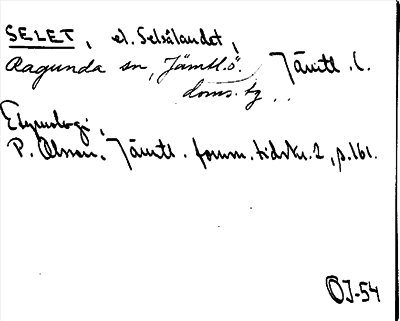 SELET, el. Selsålandet,
Ragunda sn, Jämtl.ö. Jämtl. l.
doms. tg
Etymologi,
P. Olsson. Jämtl. fornm. tidskr. 2, p. 161.
ÖJ-54